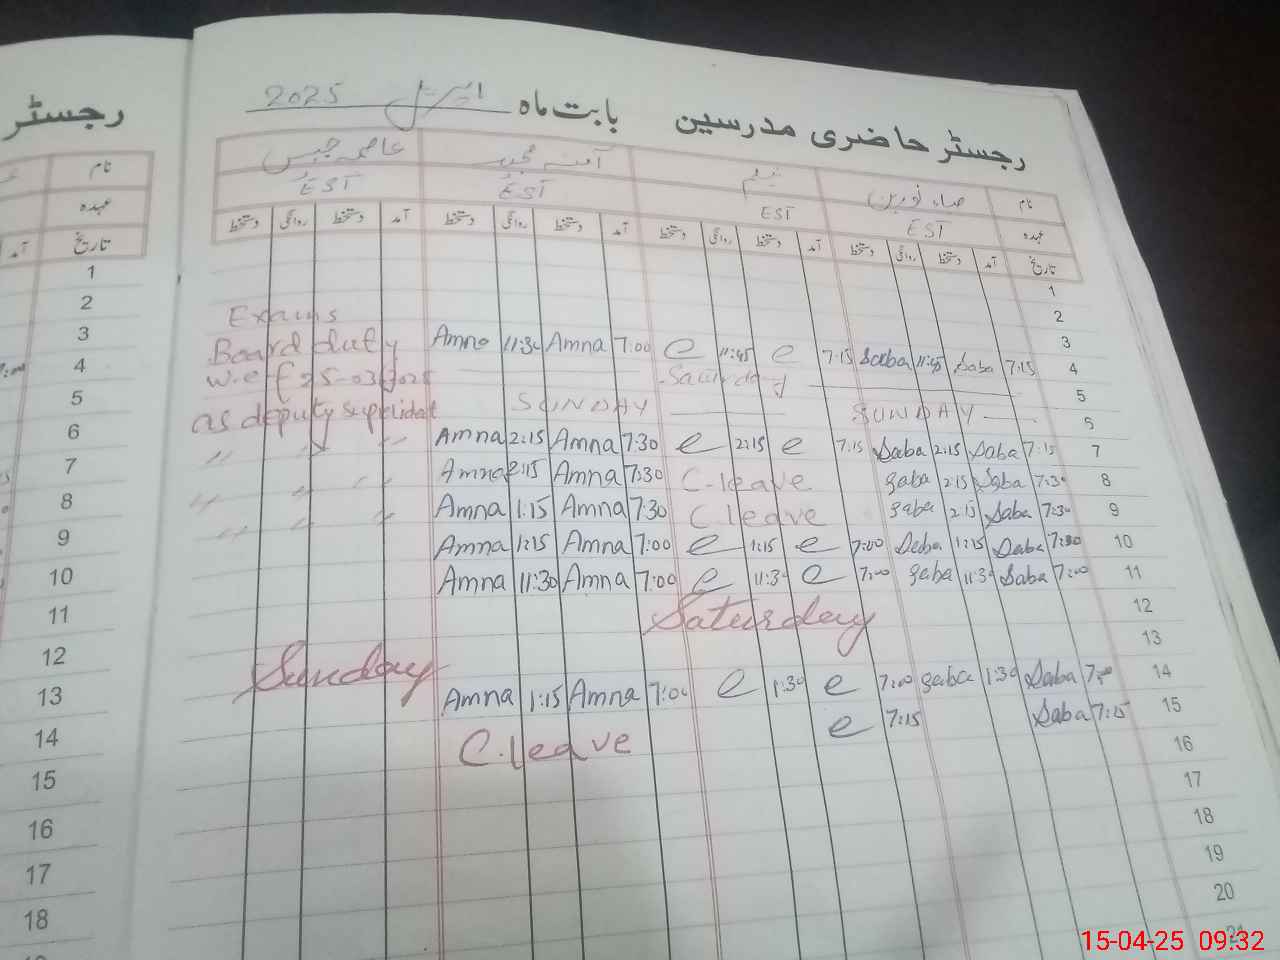 رجسٹر حاضری مدرسین بابت ماہ اپریل 2025
نام صباء نورین نیلم آمنہ مجید
عہدہ EST EST EST EST
تاریخ آمد دستخط روانگی دستخط آمد دستخط روانگی دستخط آمد دستخط روانگی دستخط آمد دستخط روانگی دستخط
1
2
3 Exams
4 7:15 Saba 11:45 Saba 7:15 e 11:45 e 7:00 Amna 11:30 Amna Board duty
5 Saturday w.e.f 25-03-2025
6 SUNDAY SUNDAY as deputy
7 7:15 Saba 2:15 Saba 7:15 e 2:15 e 7:30 Amna 2:15 Amna " " "
8 7:30 Saba 2:15 Saba C.leave 7:30 Amna 2:15 Amna " " "
9 7:30 Saba 2:15 Saba C.leave 7:30 Amna 1:15 Amna " " "
10 7:00 Saba 1:15 Saba 7:00 e 1:15 e 7:00 Amna 1:15 Amna
11 7:00 Saba 11:30 Saba 7:00 e 11:30 e 7:00 Amna 11:30 Amna
12 Saturday
13 Sunday
14 7:00 Saba 1:30 Saba 7:00 e 1:30 e 7:00 Amna 1:15 Amna
15 7:15 Saba 7:15 e C.leave
16
17
18
19
20
21
رجسٹر
نام
عہدہ
تاریخ آمد
1
2
3
4
5
6
7
8
9
10
11
12
13
14
15
16
17
18
15-04-25 09:32